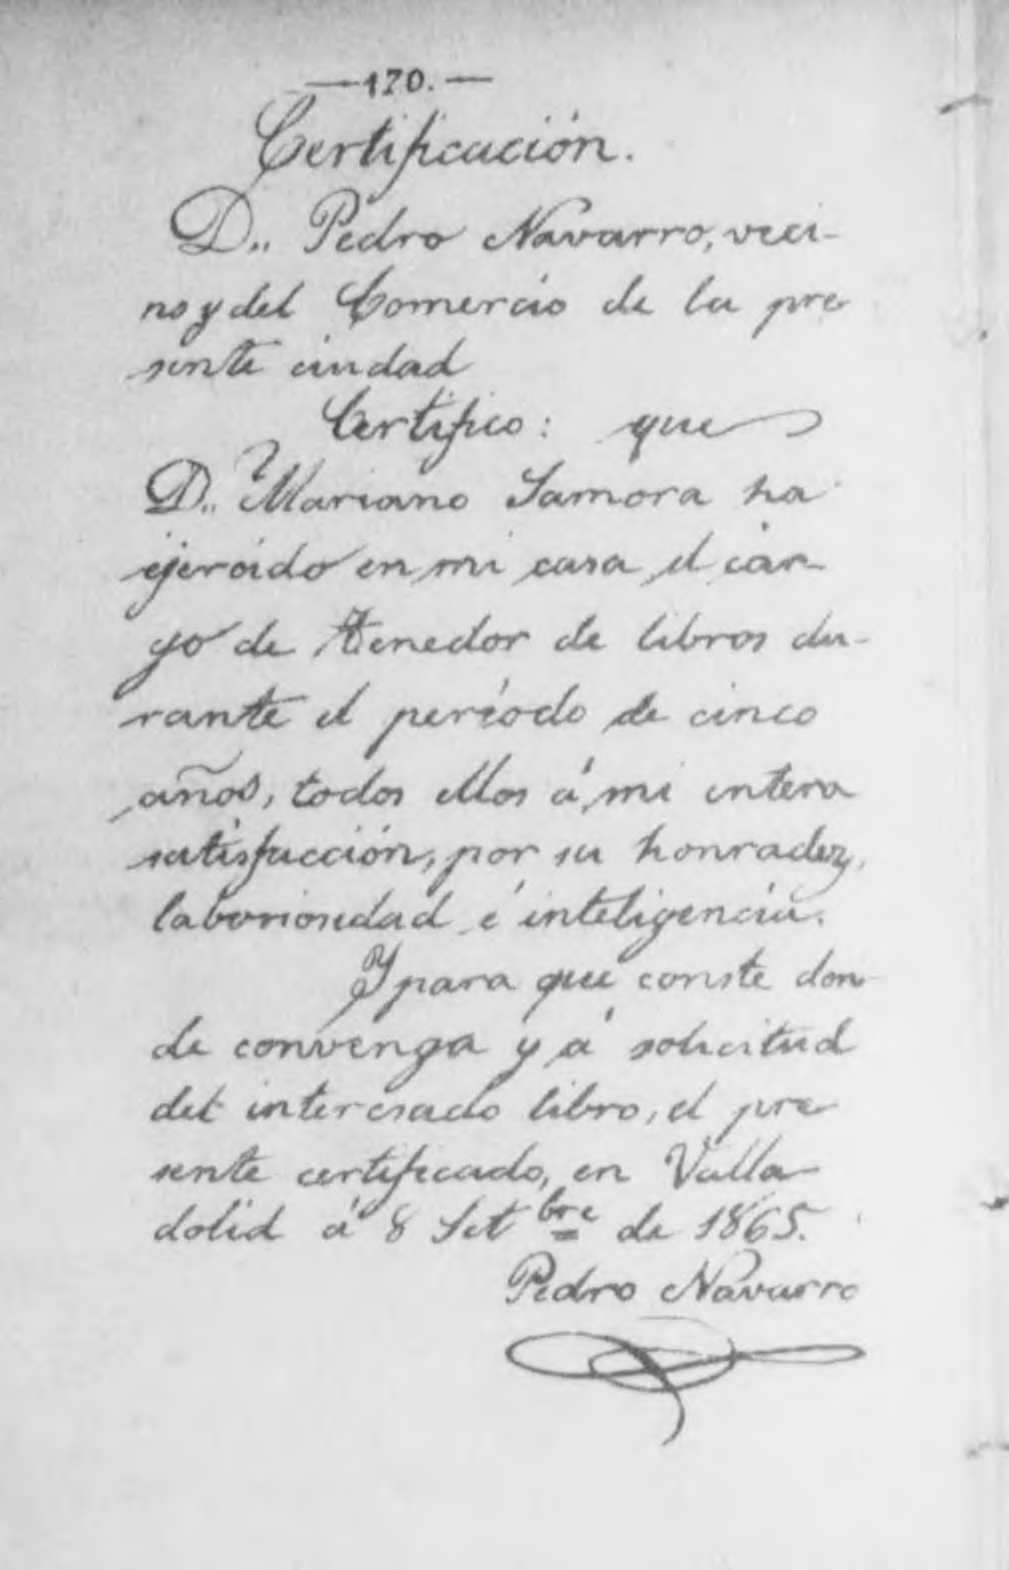 —170.—
Certificación.
D.. Pedro Navarro, veci-
no y del Comercio de la pre-
sente ciudad
Certifico: que
D.. Mariano Samora ha
ejercido en mi casa el car-
go de tenedor de libros du-
rante el período de cinco
años, todos ellos á mi entera
satisfacción, por su honradez,
laboriosidad é inteligencia.
Y para que conste don-
de convenga y á solicitud
del interesado libro, el pre-
sente certificado, en Valla-
dolid á 8 Setbre de 1865.
Pedro Navarro